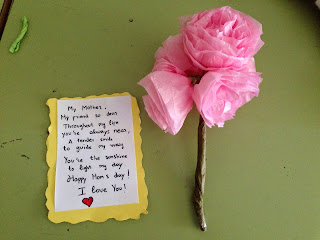 My Mother,
My friend so dear
Throughout my life
you're always near,
A tender smile
to guide my way
You're the sunshine
to light my day.
Happy Mom's day!
I love You!